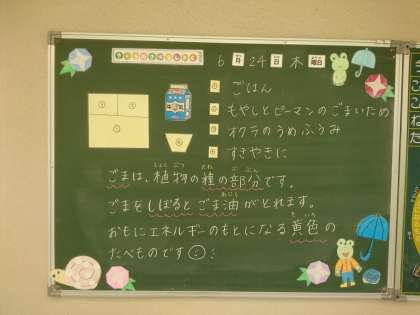 6月24日木曜日
① ごはん
② もやしとピーマンのごまいため
③ オクラのうめふうみ
④ すきやきに
ごまは、植物の種の部分です。
ごまをしぼるとごま油がとれます。
おもにエネルギーのもとになる黄色の
たべものです